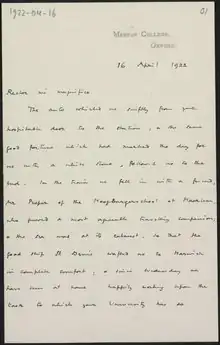 1922-04-16
01
MERTON COLLEGE,
OXFORD.
16 April 1922
Rector mi magnifice
The auto whirled us swiftly from your
hospitable door to the station, & the same
good fortune which had marked the day for
us with a white stone, followed us to the
end. In the train we fell in with a friend,
the Prefex of the school at Haarlem,
who proved a most agreeable travelling companion,
& the sea was at its calmest, so that the
good ship St Denis wafted us to Harwich
in complete comfort, & since Wednesday we
have been at home happily resting upon the
to which your University has so